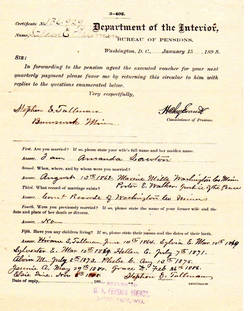 3-402.
Certificate No. 
Name,
Department of the Interior,
BUREAU OF PENSIONS.
Washington, D. C., January 15, 1898.
SIR:
In forwarding to the pension agent the executed voucher for your next
quarterly payment please favor me by returning this circular to him with
replies to the questions enumerated below.
Very respectfully,
Stephen E. Tallman
Minn
Commissioner of Pensions.
First. Are you married? If so, please state your wife's full name and her maiden name.
Answer. I am Amanda Lawton
Second. When, where, and by whom were you married?
Answer. August 1862 Marine Mills Washington Co Minn
Peter E. Walker Justice of the Peace
Third. What record of marriage exists?
Answer. Court Records of Washington Co Minn
Fourth. Were you previously married? If so, please state the name of your former wife and the
date and place of her death or divorce.
Answer. No
Fifth. Have you any children living? If so, please state their names and the dates of their birth.
Answer. Hiram E. Tallman June 10th 1864. Sylvia E. Mar 10th 1869
Sylvester E. Mar 10th 1869. Hellen C. July 7th 1871.
Alvin M. July 2d 1873. Phebe E. Aug 12 1875.
May 29th 1880. Grace D. Feb 26th 1886.
Nov 6th
Stephen E. Tallman